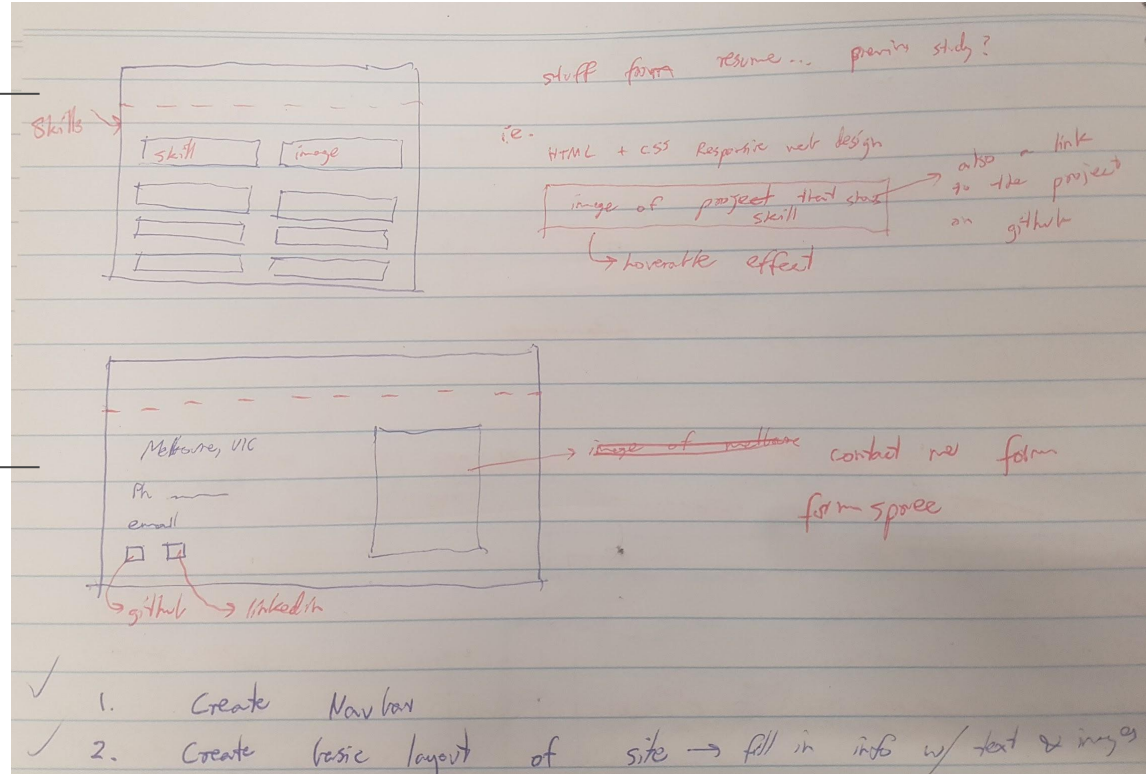 stuff from resume... previous study?
Skills
skill image
i.e.
HTML + CSS Responsive web design
image of project that shows skill
also a link
to the project
on github
hoverable effect
Melbourne, VIC
Ph
email
github linkedin
image of melbourne
contact me form
formspree
1. Create Navbar
2. Create basic layout of site → fill in info w/ text & images